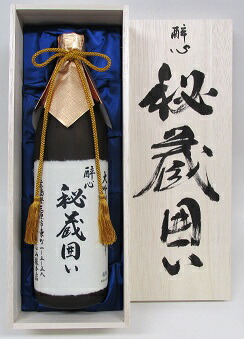 大吟醸
醉心
秘蔵囲い
醉心
秘蔵囲い